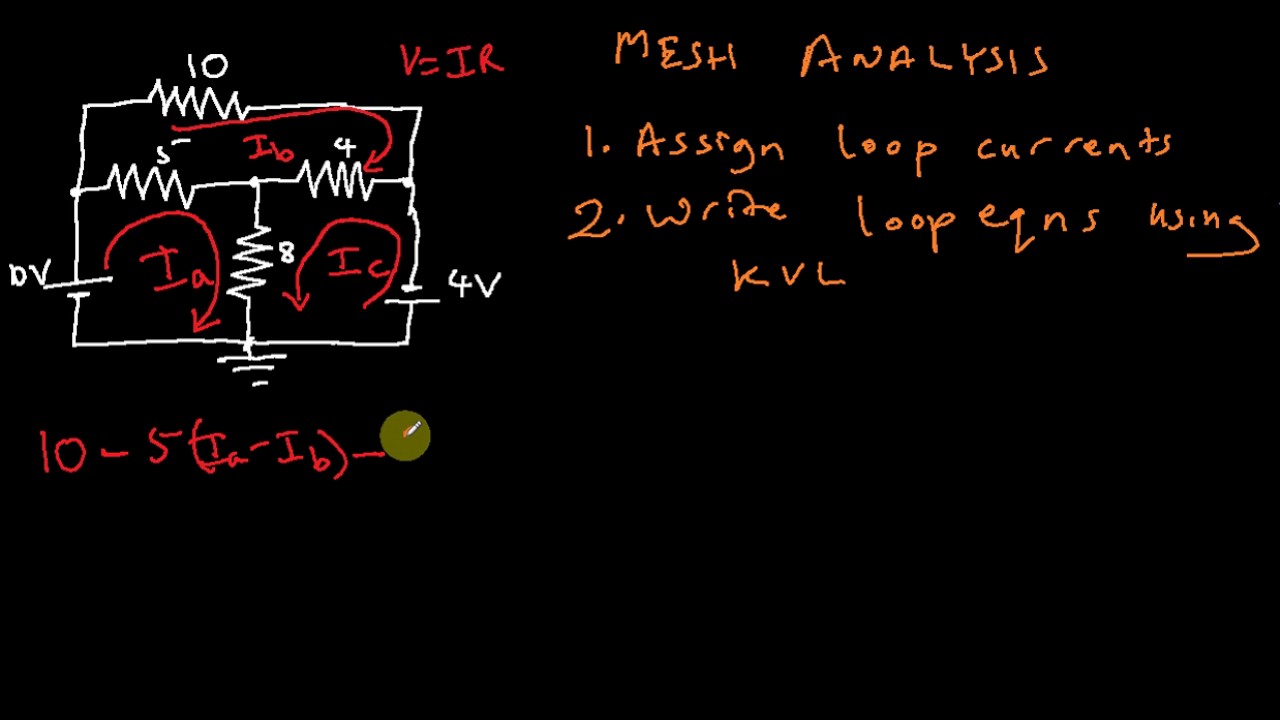 MESH ANALYSIS
1. Assign loop currents
2. Write loop eqns using
KVL
V=IR
10
5
Ib
4
0V
Ia
8
Ic
4V
10 - 5(Ia - Ib) -